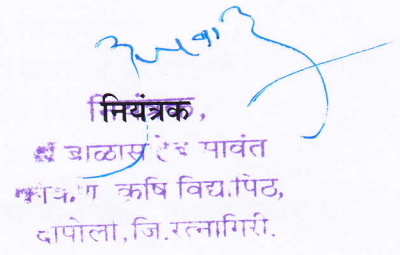 नियंत्रक
नियंत्रक,
बाळासाहेब सावंत
कोंकण कृषि विद्यापिठ,
दापोली, जि.रत्नागिरी.